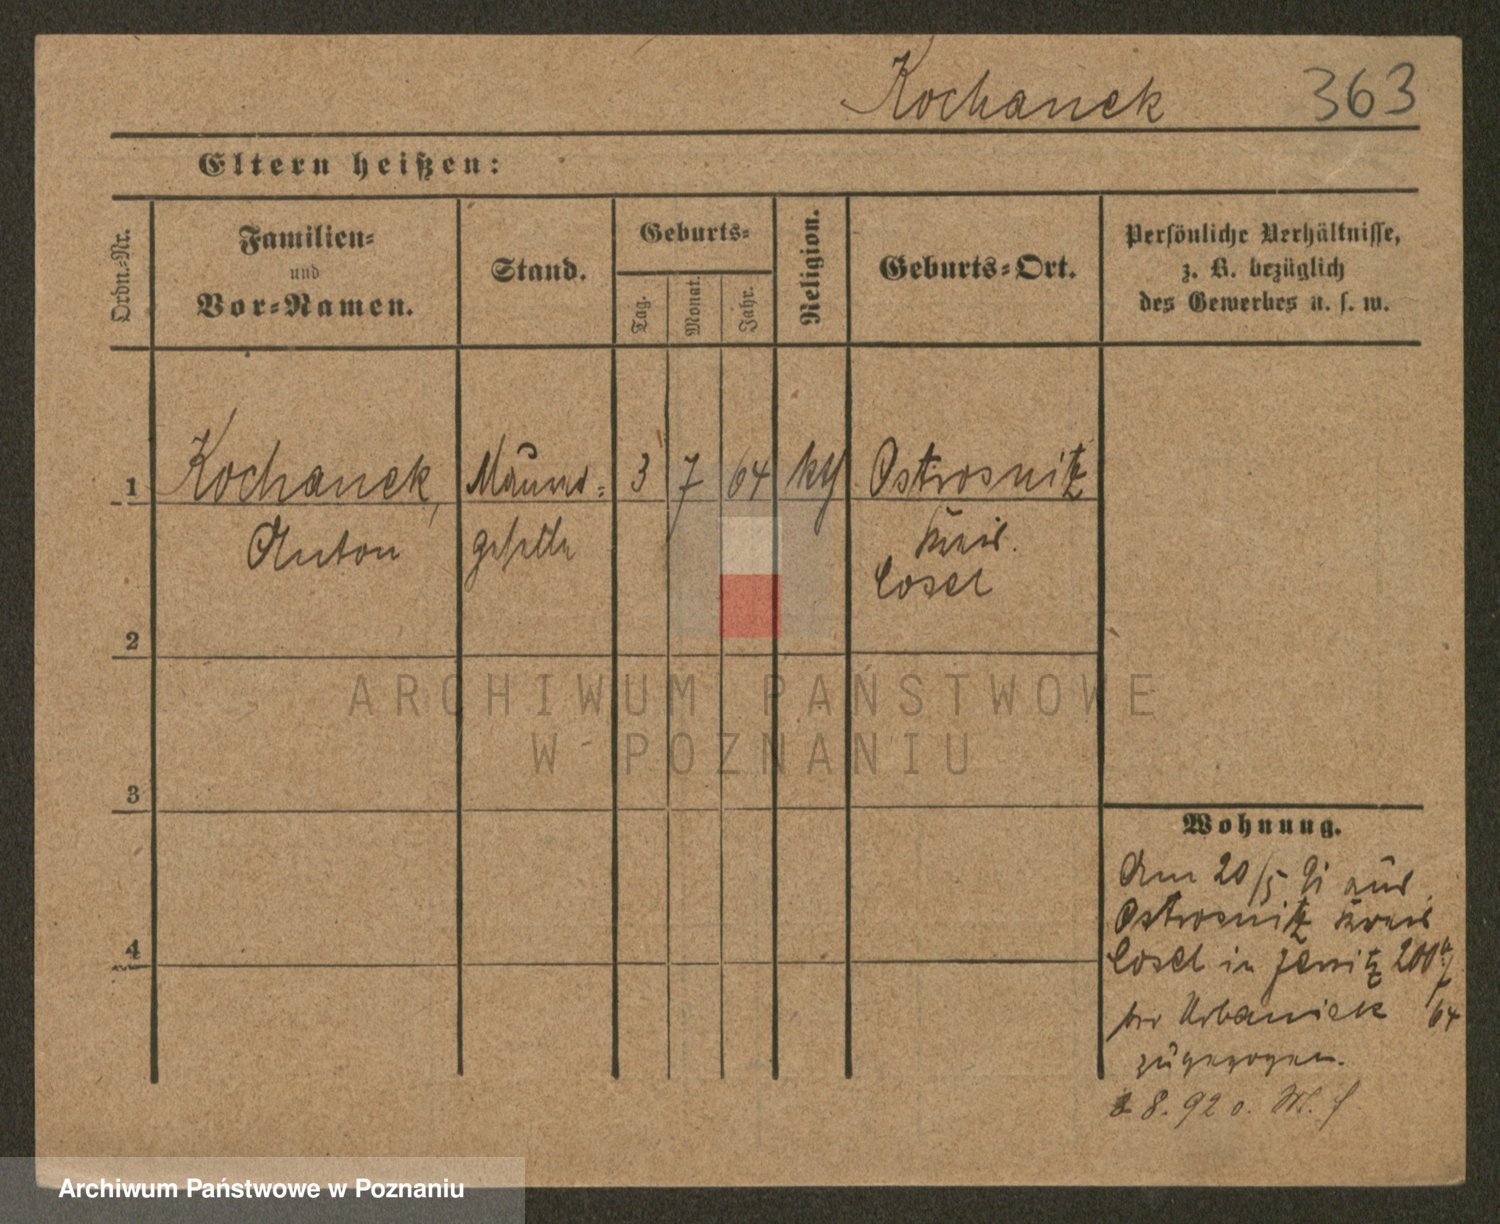 Kochanek 363
Eltern heißen:
Ordn.-Nr.
Familien-
und
Vor-Namen.
Stand.
Geburts-
Tag.
Monat.
Jahr.
Religion.
Geburts-Ort.
Persönliche Verhältnisse,
z. B. bezüglich
des Gewerbes u. s. w.
1 Kochanek, 3 7 64 Ostrosnitz
Anton geselle Kreis
Cosel
2
ARCHIWUM PAŃSTWOWE
W POZNANIU
3
Wohnung.
Am 20/5 91 aus
Ostrosnitz Kreis
4
Cosel in Jersitz
bei Urbaniak 64
zugezogen.
8. 92
Archiwum Państwowe w Poznaniu